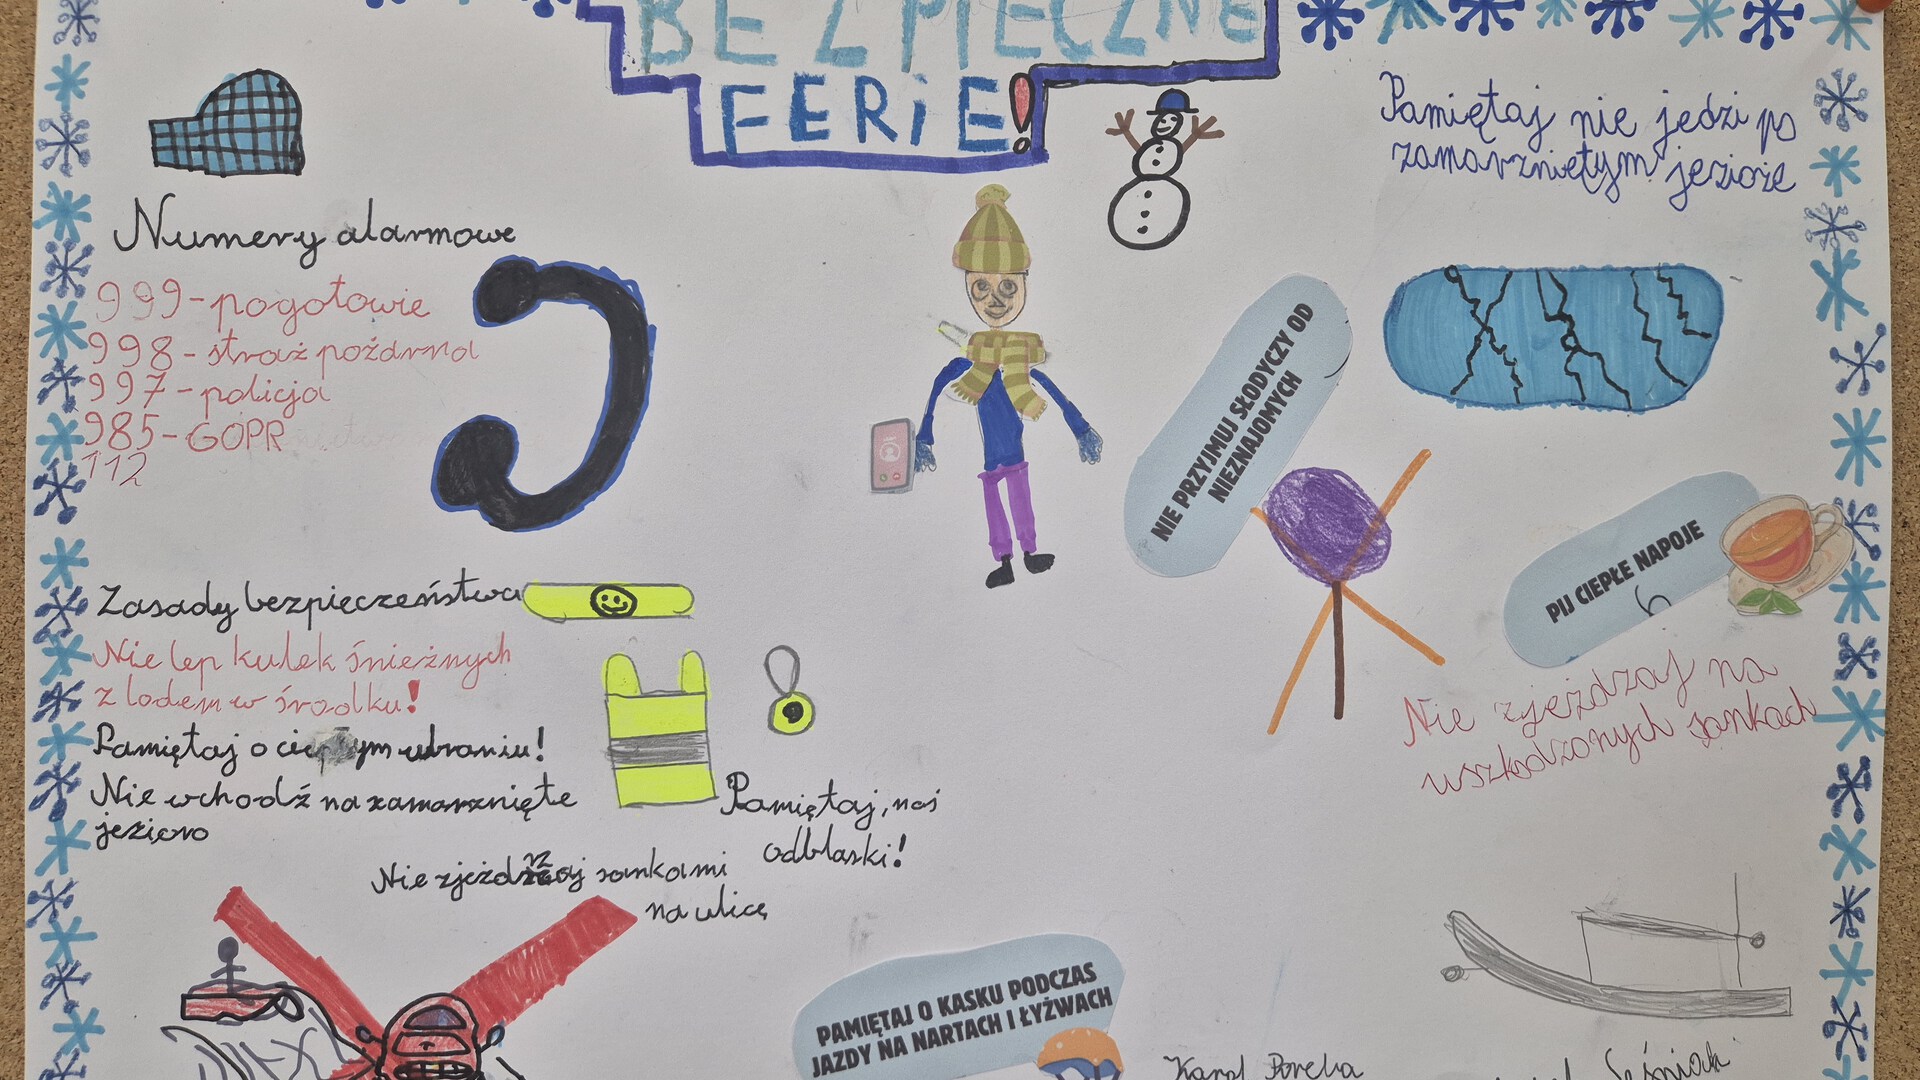 BEZPIECZNE
FERIE!
Pamiętaj nie jedzi po
zamarzniętym jezioże
Numery alarmowe
999-pogotowie
998-straż pożarna
997-policja
985-GOPR
112
NIE PRZYJMUJ SŁODYCZY OD
NIEZNAJOMYCH
PIJ CIEPŁE NAPOJE
Zasady bezpieczeństwa
Nie lep kulek śnieżnych
z lodem w środku!
Pamiętaj o ciepłym ubraniu!
Nie wchodź na zamarznięte
jezioro
Pamiętaj, noś
odblaski!
Nie zjeżdżaj sankami
na ulicę
Nie zjeżdzaj na
uszkodzonych sankach
PAMIĘTAJ O KASKU PODCZAS
JAZDY NA NARTACH I ŁYŻWACH
Karol